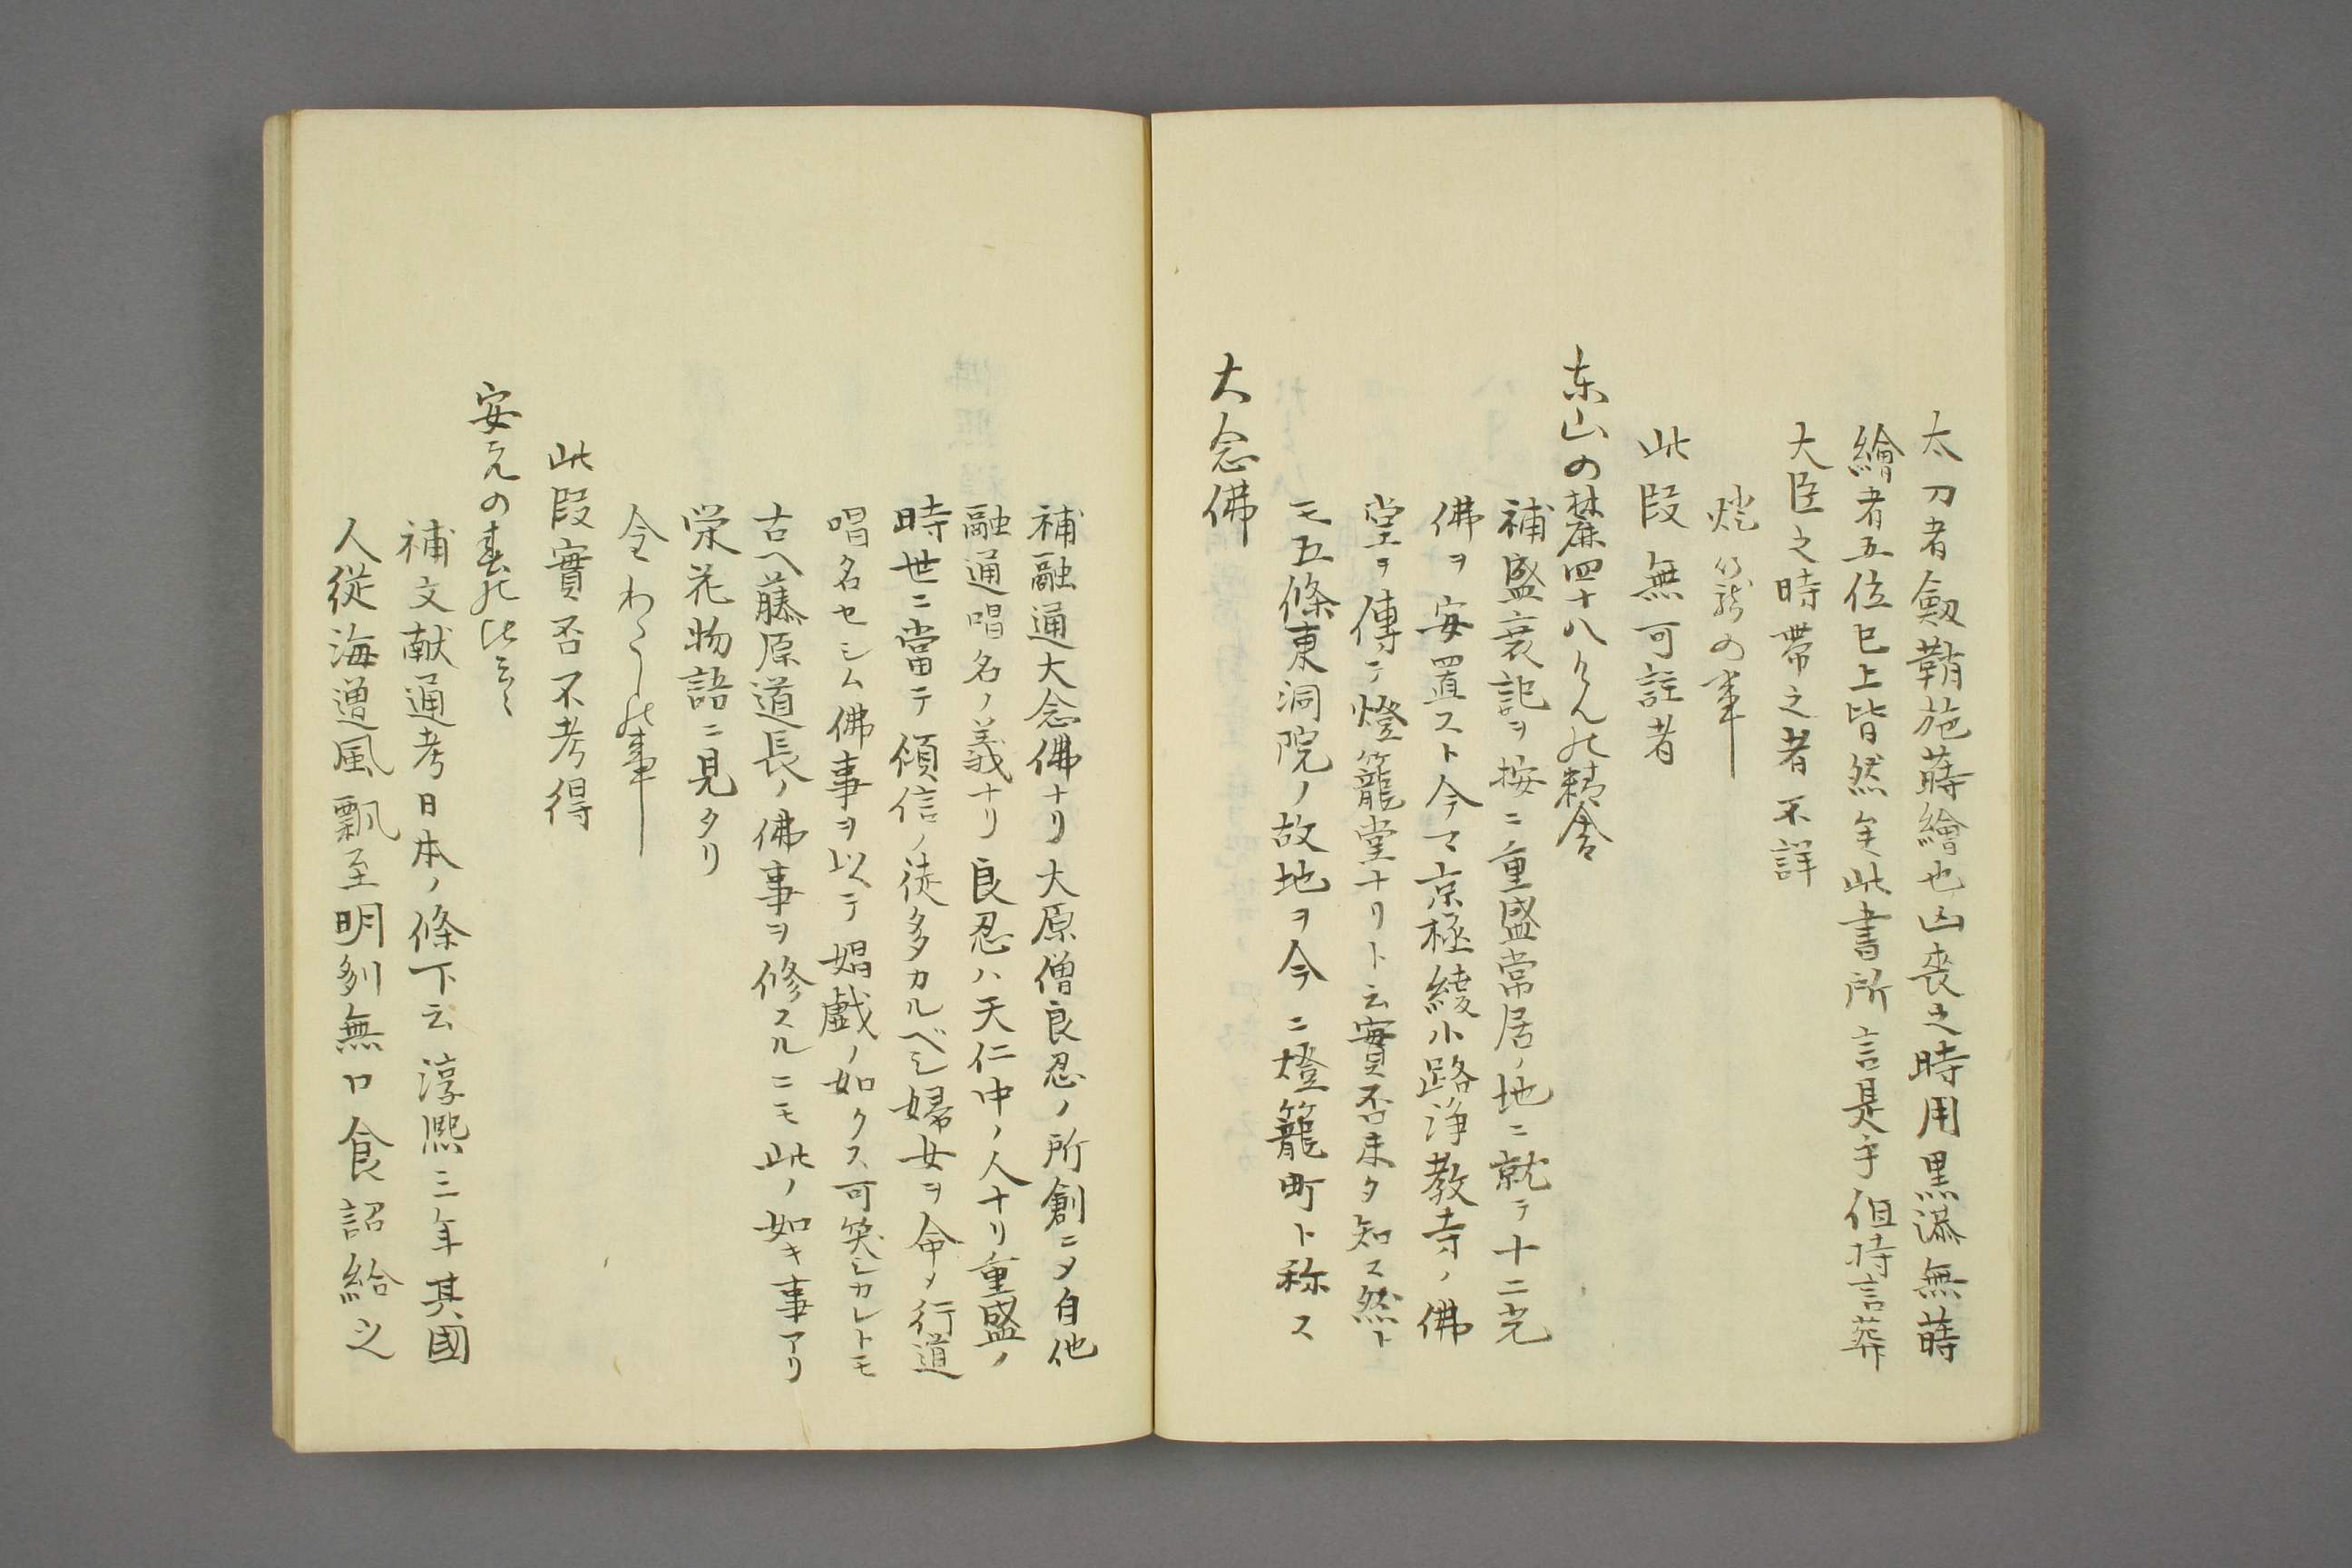 太刀者劔鞘施蒔繪也凶喪之時用黒漆無蒔
繪者五位已上皆然矣此書所言是乎但持言葬
大臣之時帶之者不詳
燈籠の事
此段無可註者
东山の麓四十八けんの精舎
補盛衰記ヲ按ニ重盛常居ノ地ニ就テ十二光
佛ヲ安置スト今マ京極綾小路浄教寺ノ佛
堂ヲ傳テ燈籠堂ナリト云實否未タ知ス然ト
モ五條東洞院ノ故地ヲ今ニ燈籠町ト称ス
大念佛
補融通大念佛ナリ大原僧良忍ノ所創ニメ自他
融通唱名ノ義ナリ良忍ハ天仁中ノ人ナリ重盛ノ
時世ニ當テ傾信ノ徒多カルベシ婦女ヲ命メ行道
唱名セシム佛事ヲ以テ娼戯ノ如クス可笑シカレトモ
古へ藤原道長ノ佛事ヲ修スルニモ此ノ如キ事アリ
栄花物語ニ見タリ
金わたしの事
此段實否不考得
安元の春の比云〻
補文献通考日本ノ條下云淳熙三年其國
人從海遭風飄至明刕無口食詔給之